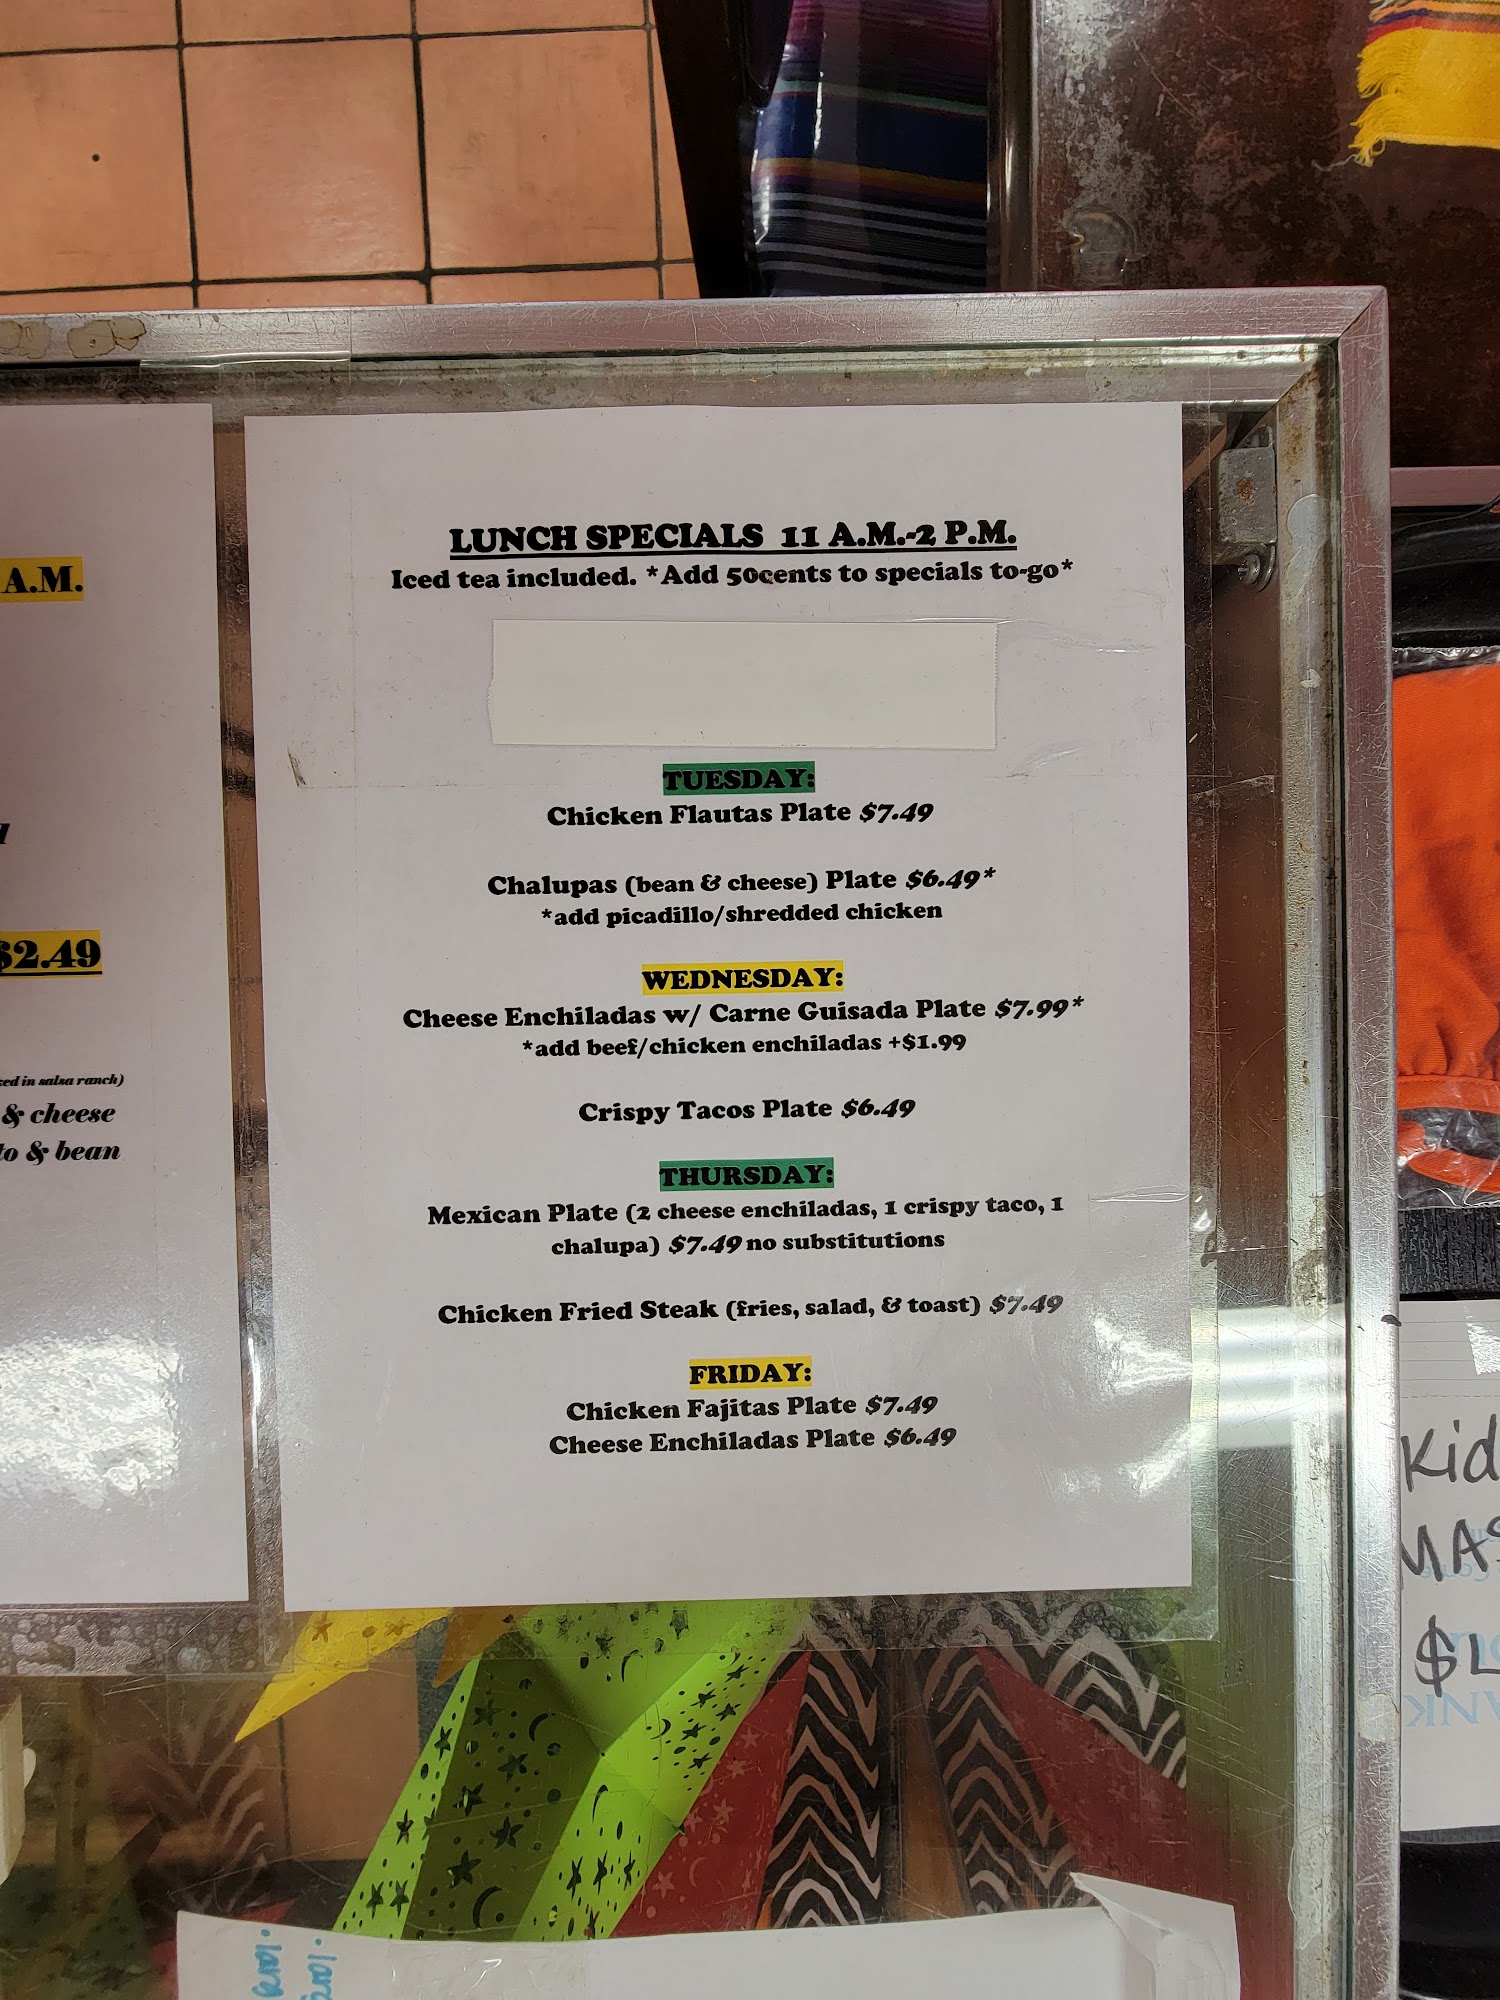 A.M.
$2.49
ked in salsa ranch)
& cheese
to & bean
LUNCH SPECIALS 11 A.M.-2 P.M.
Iced tea included. *Add 50cents to specials to-go*
TUESDAY:
Chicken Flautas Plate $7.49
Chalupas (bean & cheese) Plate $6.49*
*add picadillo/shredded chicken
WEDNESDAY:
Cheese Enchiladas w/ Carne Guisada Plate $7.99*
*add beef/chicken enchiladas +$1.99
Crispy Tacos Plate $6.49
THURSDAY:
Mexican Plate (2 cheese enchiladas, 1 crispy taco, 1
chalupa) $7.49 no substitutions
Chicken Fried Steak (fries, salad, & toast) $7.49
FRIDAY:
Chicken Fajitas Plate $7.49
Cheese Enchiladas Plate $6.49
Kid
MAS
$